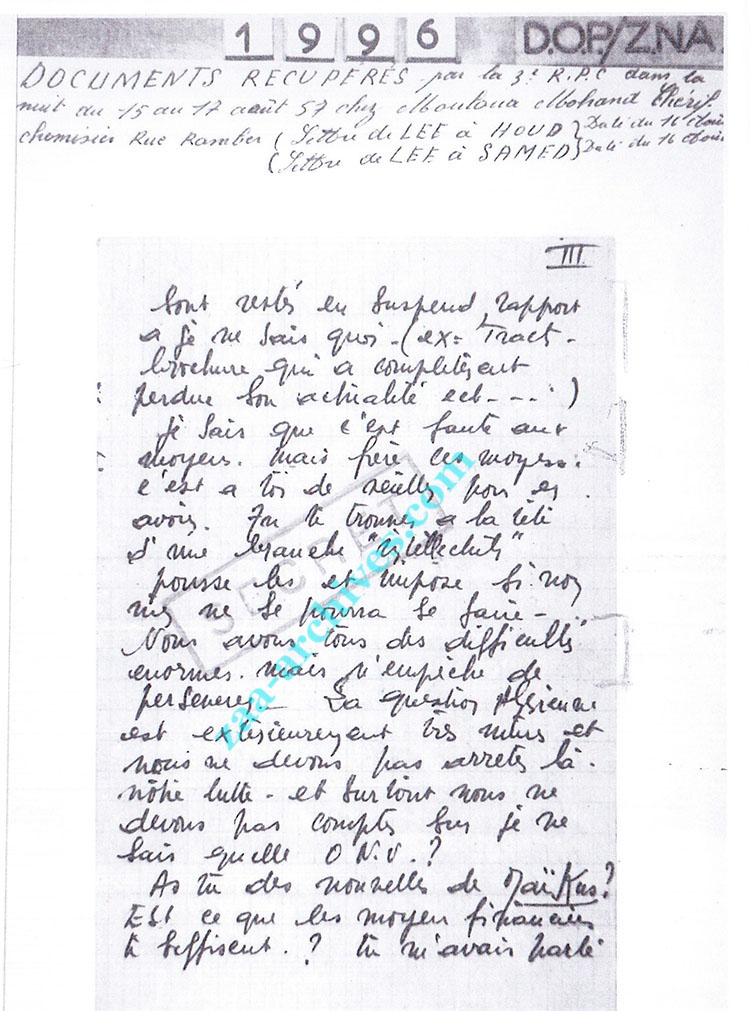 1 9 9 6 D.O.P./Z.N.A
DOCUMENTS RECUPERES par la 3e R.P.C dans la
nuit du 15 au 17 août 57 chez Mouloua Mohand Chérif
chemisier Rue Ramber (Lettre de LEE à HOUD } Daté du 16 Aout
(Lettre de LEE à SAMED } Daté du 16 Aout
III
Sont restés en suspend, rapport
a je ne sais quoi - (ex = Tract -
brochure qui a complètement
perdue son actualité ect - - - )
Je sais que c'est faute aux
moyens. mais frère les moyens :
c'est a toi de veiller pour es
avoir. Tu te trouves a la tété
d'une branche "intellectuels"
pousse les et impose si non
rien ne se pourra se faire -
Nous avons tous des difficultés
enormes. mais n'empèche de
perseverer - La question Algerienne
est extérieurement très mure et
nous ne devons pas arreter là.
nôtre lutte - et surtout nous ne
devons pas compter sur je ne
sais quelle O N.U. ?
As tu des nouvelles de
EST ce que les moyen financiers
te suffisent. ? tu m'avais parlé
SECRET
zaa-archives.com